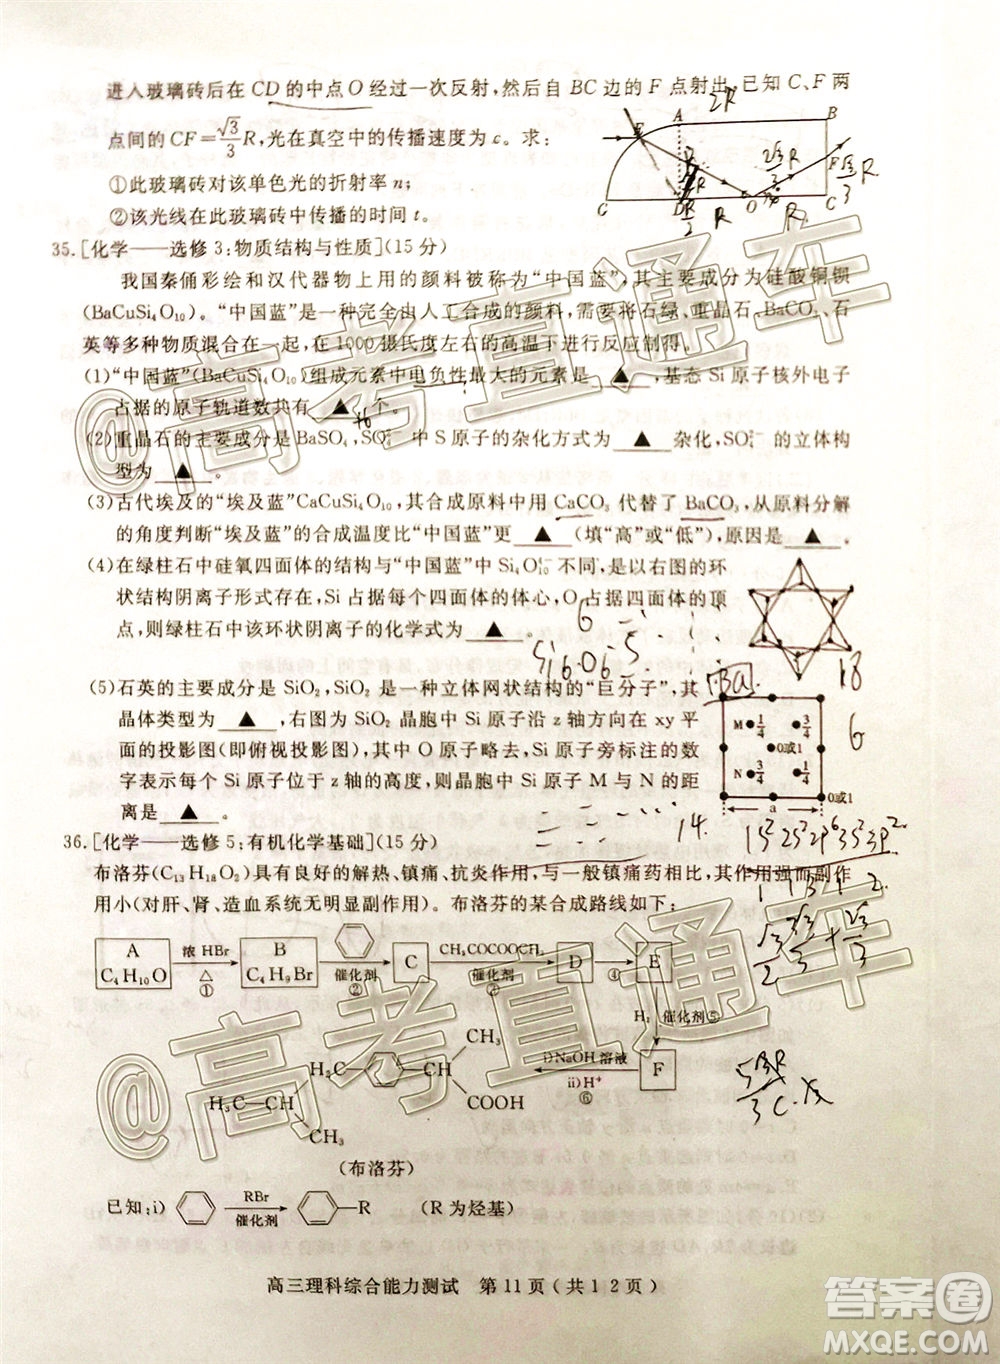 进入玻璃砖后在CD的中点O经过一次反射,然后自BC边的F点射出,已知C、F两
点间的CF=√3/3R,光在真空中的传播速度为c。求:
①此玻璃砖对该单色光的折射率n;
②该光线在此玻璃砖中传播的时间t。
2R
E A B
G D O C
F
R
35.[化学——选修3:物质结构与性质](15分)
我国秦俑彩绘和汉代器物上用的颜料被称为“中国蓝”,其主要成分为硅酸铜钡
(BaCuSi₄O₁₀)。“中国蓝”是一种完全由人工合成的颜料,需要将石绿、重晶石、BaCO₃、石
英等多种物质混合在一起,在1000摄氏度左右的高温下进行反应制得。
(1)“中国蓝”(BaCuSi₄O₁₀)组成元素中电负性最大的元素是 ▲ ,基态Si原子核外电子
占据的原子轨道数共有 ▲ 个。
(2)重晶石的主要成分是BaSO₄,SO₄²⁻中S原子的杂化方式为 ▲ 杂化,SO₄²⁻的立体构
型为 ▲ 。
(3)古代埃及的“埃及蓝”CaCuSi₄O₁₀,其合成原料中用CaCO₃代替了BaCO₃,从原料分解
的角度判断“埃及蓝”的合成温度比“中国蓝”更 ▲ (填“高”或“低”),原因是 ▲ 。
(4)在绿柱石中硅氧四面体的结构与“中国蓝”中Si₄O₁₀⁴⁻不同,是以右图的环
状结构阴离子形式存在,Si占据每个四面体的体心,O占据四面体的顶
点,则绿柱石中该环状阴离子的化学式为 ▲ 。
6
Si6O6
18
6
Ba
(5)石英的主要成分是SiO₂,SiO₂是一种立体网状结构的“巨分子”,其
晶体类型为 ▲ ,右图为SiO₂晶胞中Si原子沿z轴方向在xy平
面的投影图(即俯视投影图),其中O原子略去,Si原子旁标注的数
字表示每个Si原子位于z轴的高度,则晶胞中Si原子M与N的距
离是 ▲ 。
M 1/4 3/4
0或1
N 3/4 1/4
a 0或1
14.
1s²2s²2p⁶3s²3p²
36.[化学——选修5:有机化学基础](15分)
布洛芬(C₁₃H₁₈O₂)具有良好的解热、镇痛、抗炎作用,与一般镇痛药相比,其作用强而副作
用小(对肝、肾、造血系统无明显副作用)。布洛芬的某合成路线如下:
A C₄H₁₀O 浓HBr △ ① B C₄H₉Br 催化剂 ② C CH₃COCOOCH₃ 催化剂 ③ D ④ E
H₂ 催化剂⑤
F i)NaOH溶液 ii)H⁺ ⑥
CH₃
H₃C—CH CH
COOH
CH₃
(布洛芬)
已知:i) RBr 催化剂 —R (R为烃基)
高三理科综合能力测试 第11页(共12页)
@高考直通车
@高考直通车
答案圈
MXQE.COM